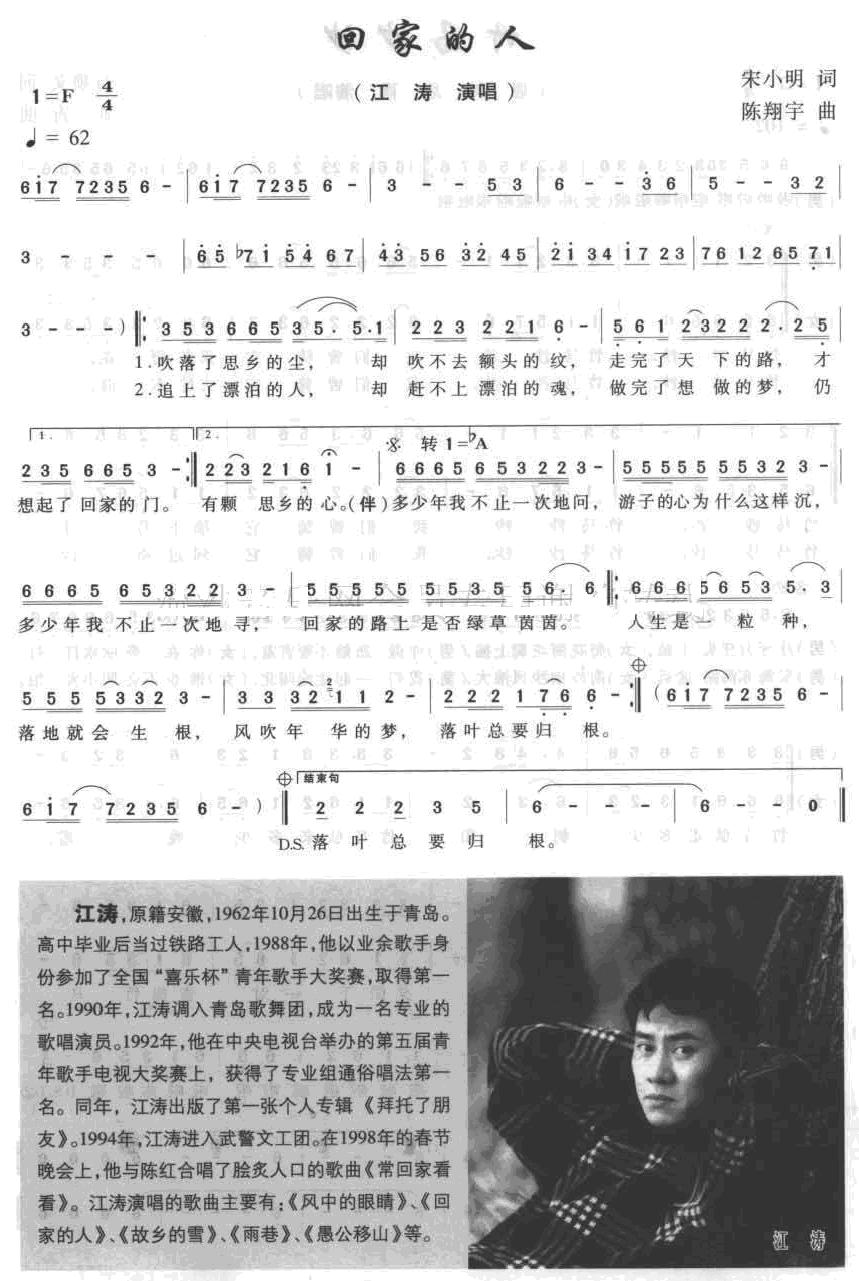 回家的人
1=F 4/4
（江 涛 演唱）
宋小明 词
陈翔宇 曲
♩= 62
6i7 7235 6 - | 6i7 7235 6 - | 3 - - 53 | 6 - -36 | 5 - - 32 |
3 - - - | 65 ♭7i 54 67 | 43 56 32 45 | 2i 34 i7 23 | 76 12 65 71 |
3 - - - ) ‖: 3 5 3 6 6 5 3 5·5·1 | 2 2 3 2 2 1 6 - | 5 6 1 2 3 2 2 2·2 5 |
1.吹落了思乡的尘， 却 吹不去 额头的纹， 走完了天 下的路， 才
2.追上了漂泊的人， 却 赶不上 漂泊的魂， 做完了想 做的梦， 仍
1. 2. 𝄋 转 1=♭A
2 3 5 6 6 5 3 - :‖ 2 2 3 2 1 6 1 - | 6 6 6 5 6 5 3 2 2 3 - | 5 5 5 5 5 5 5 3 2 3 - |
想起了 回家的 门。 有颗 思乡的 心。（伴）多少年我 不止一次地问， 游子的心为什么这样沉，
6 6 6 5 6 5 3 2 2 3 - | 5 5 5 5 5 5 5 3 5 5 6·6 ‖: 6 6 6 5 6 5 3 5·3 |
多少年我 不止一次地 寻， 回家的路上是否绿草茵茵。 人生是一 粒 种，
5 5 5 5 3 3 2 3 - | 3 3 3 2 1 1 2 - | 2 2 2 1 7 6 6 - :‖ (6i7 7235 6 - |
落地就会 生 根， 风吹年 华的梦， 落叶总要归 根。
结束句
6i7 7235 6 - ) ‖ 2 2 2 3 5 | 6 - - - | 6 - - 0 ‖
D.S. 落 叶 总 要 归 根。
江涛，原籍安徽，1962年10月26日出生于青岛。
高中毕业后当过铁路工人，1988年，他以业余歌手身
份参加了全国“喜乐杯”青年歌手大奖赛，取得第一
名。1990年，江涛调入青岛歌舞团，成为一名专业的
歌唱演员。1992年，他在中央电视台举办的第五届青
年歌手电视大奖赛上，获得了专业组通俗唱法第一
名。同年，江涛出版了第一张个人专辑《拜托了朋
友》。1994年，江涛进入武警文工团。在1998年的春节
晚会上，他与陈红合唱了脍炙人口的歌曲《常回家看
看》。江涛演唱的歌曲主要有：《风中的眼睛》、《回
家的人》、《故乡的雪》、《雨巷》、《愚公移山》等。
江 涛